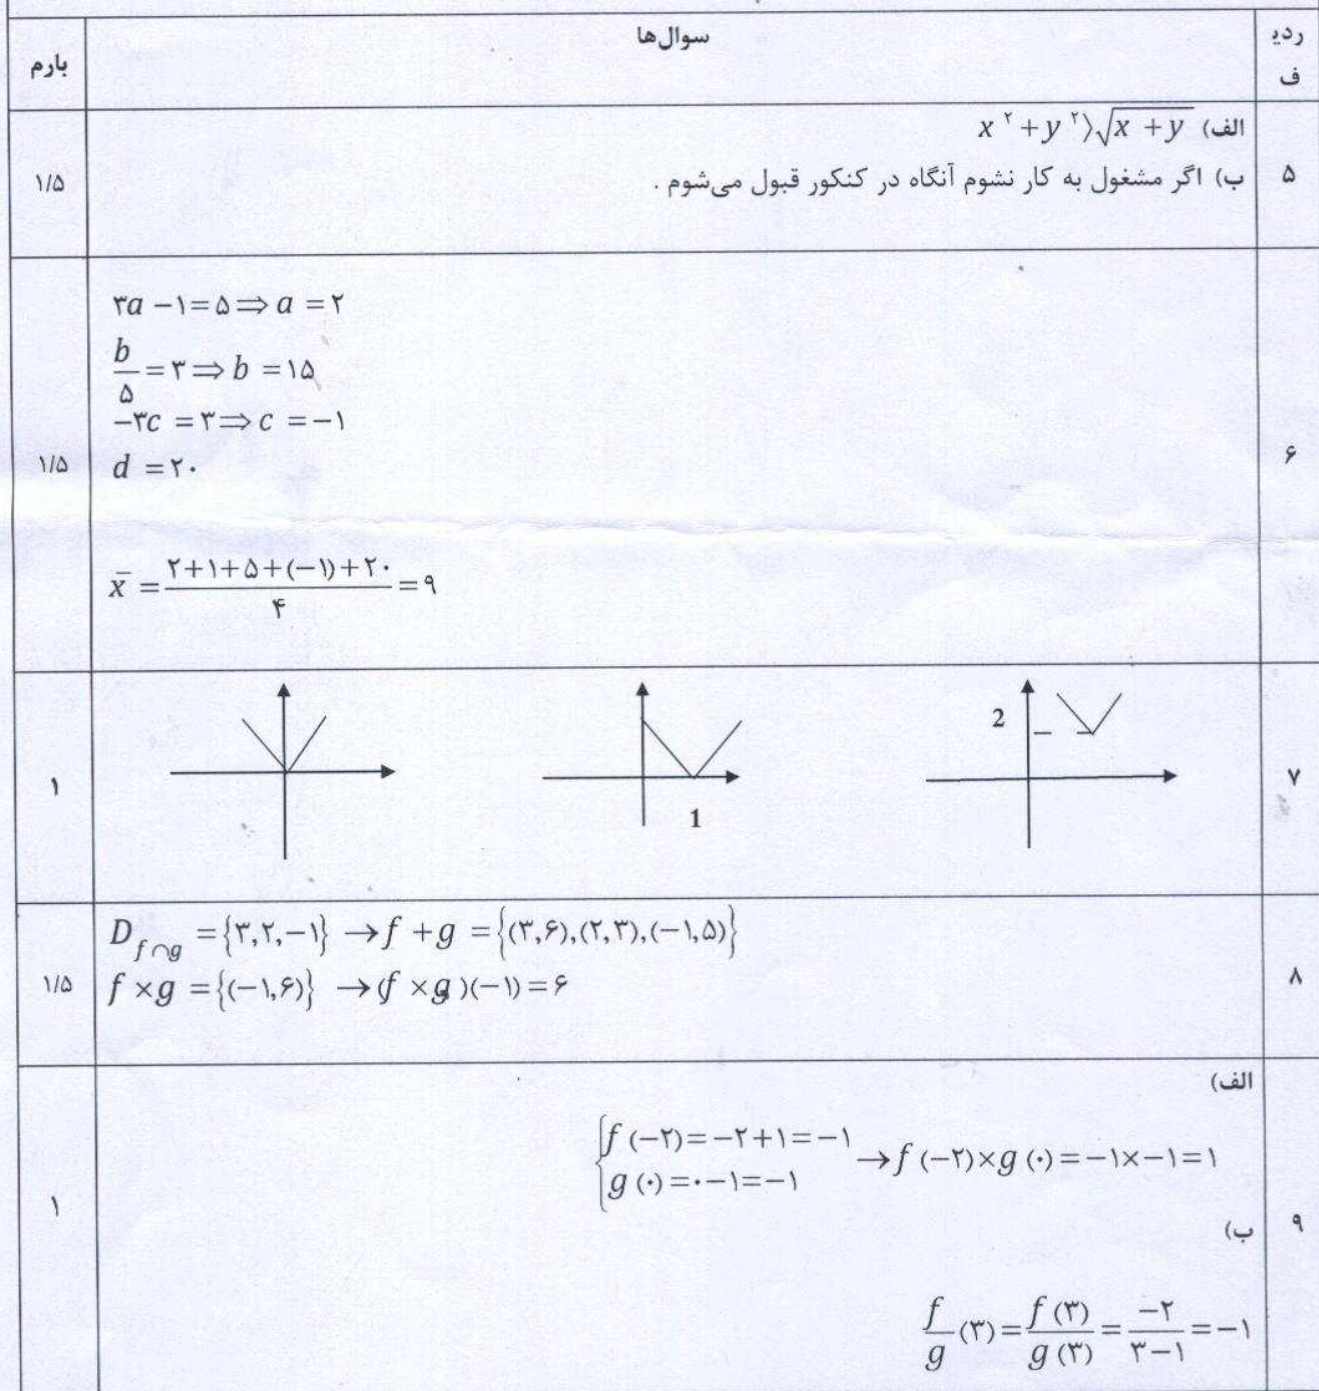 ردیف سوال‌ها بارم
۵ الف) x^۲ + y^۲ ⟩ √(x + y)
ب) اگر مشغول به کار نشوم آنگاه در کنکور قبول می‌شوم .
۱/۵
۶
۳a − ۱ = ۵ ⇒ a = ۲
b/۵ = ۳ ⇒ b = ۱۵
−۳c = ۳ ⇒ c = −۱
d = ۲۰
۱/۵
x̄ = (۲+۱+۵+(−۱)+۲۰)/۴ = ۹
۷
2
1
۱
۸
D_{f∩g} = {۳,۲,−۱} → f + g = {(۳,۶),(۲,۳),(−۱,۵)}
f × g = {(−۱,۶)} → (f × g)(−۱) = ۶
۱/۵
۹
الف)
{ f(−۲) = −۲+۱ = −۱
g(۰) = ۰−۱ = −۱ → f(−۲)×g(۰) = −۱×−۱ = ۱
۱
ب)
f/g (۳) = f(۳)/g(۳) = −۲/(۳−۱) = −۱